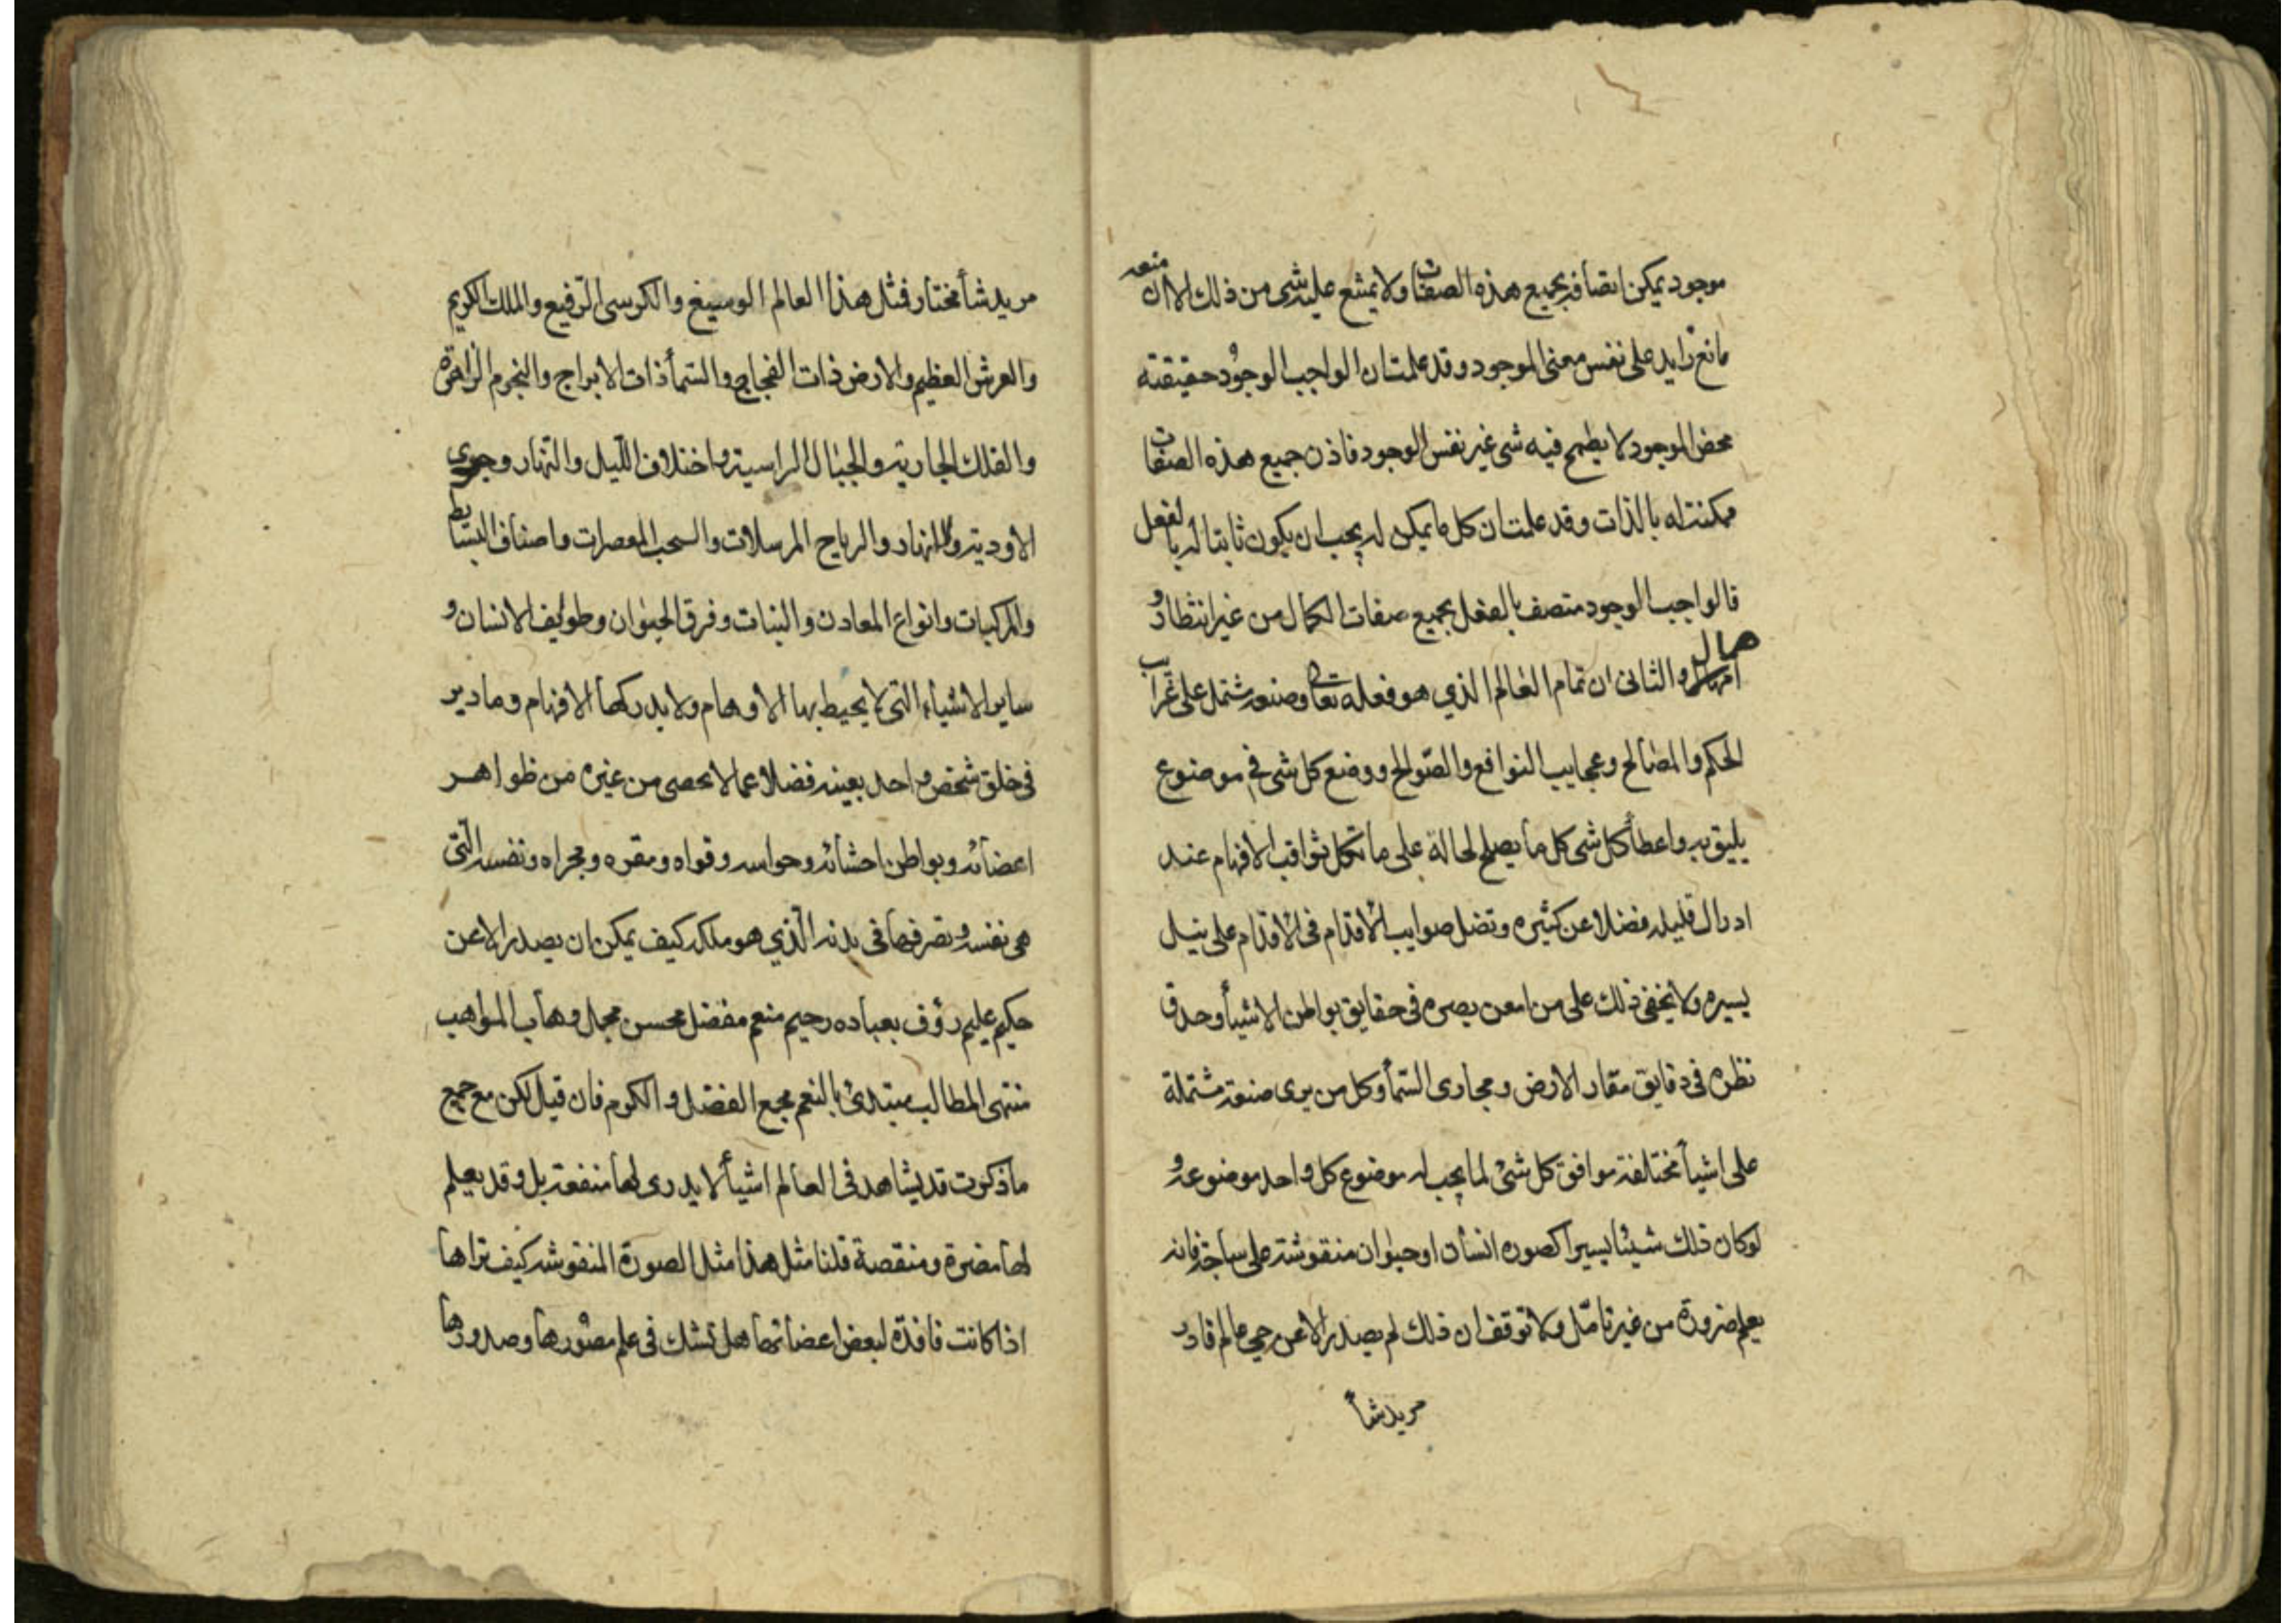 موجود يمكن اتصافه بجميع هذه الصفات ولا يمتنع عليه شى من ذلك الا ان منعه
مانع زايد على نفس معنى الموجود وقد علمت ان الواجب الوجود حقيقته
محض الموجود لا يطمح فيه شى غير نفس الوجود فاذن جميع هذه الصفات
ممكنة له بالذات وقد علمت ان كل ما يمكن له يجب ان يكون ثابتا له بالفعل
فالواجب الوجود متصف بالفعل بجميع صفات الكمال من غير انتظار و
امهال والثانى ان تمام العالم الذي هو فعله تعالى وصنعه مشتمل على غرايب
الحكم والمصالح وعجايب النوافع والصوالح ووضع كل شى في موضوع
يليق به واعطأ كل شى كل ما يصلح لحاله على ما تكل ثواقب الافهام عند
ادراك قليله فضلا عن كثيره وتضل صوايب الاقدام فى الاقدام على نيل
يسيره ولا يخفى ذلك على من امعن بصره فى حقايق بواطن الاشيأ وحدق
نظره فى دقايق مقار الارض ومجارى السمأ وكل من يرى صنعة مشتملة
على اشيأ مختلفة موافق كل شئ لما يجب له موضوع كل واحد موضوعه و
لو كان ذلك شيئا يسيرا كصوره انسان او حيوان منقوشة على ساجة فانه
يعلم ضرورة من غير تامّل ولا توقف ان ذلك لم يصدر الا عن حي عالم قادر
مريد شأ
مريد شأ مختار فمثل هذا العالم الوسيع والكرسى الرفيع والملك الكريم
والعرش العظيم والارض ذات الفجاج والسمأ ذات الابراج والنجوم الزاهرة
والفلك الجارية والجبال الراسية واختلاف الليل والنهار وجرى
الاودية والانهار والرياح المرسلات والسحب المعصرات واصناف البسايط
والمركبات وانواع المعادن والنبات وفرق الحيوان وطوايف الانسان و
ساير الاشيأء التى لا يحيط بها الاوهام ولا يدركها الافهام وما دبر
فى خلق شخص واحد بعينه فضلا عما لا يحصى من غيره من ظواهر
اعضائه وبواطن احشائه وحواسه وقواه ومقره ومجراه ونفسه الّتى
هى نفسه وتصرفها فى بدنه الّذي هو ملكه كيف يمكن ان يصدر الا عن
حكيم عليم رؤف بعباده رحيم منعم مفضل محسن مجمل وهاب المواهب
منتهى المطالب مبتدئ بالنعم مجمع الفضل والكرم فان قيل لكن مع جميع
ما ذكرت قد يشاهد فى العالم اشيأ لا يدرى لها منفعة بل وقد يعلم
لها مضرة ومنقصة قلنا مثل هذا مثل الصورة المنقوشه كيف تراها
اذا كانت فاقدة لبعض اعضائها هل تشك فى علم مصورها وصدورها